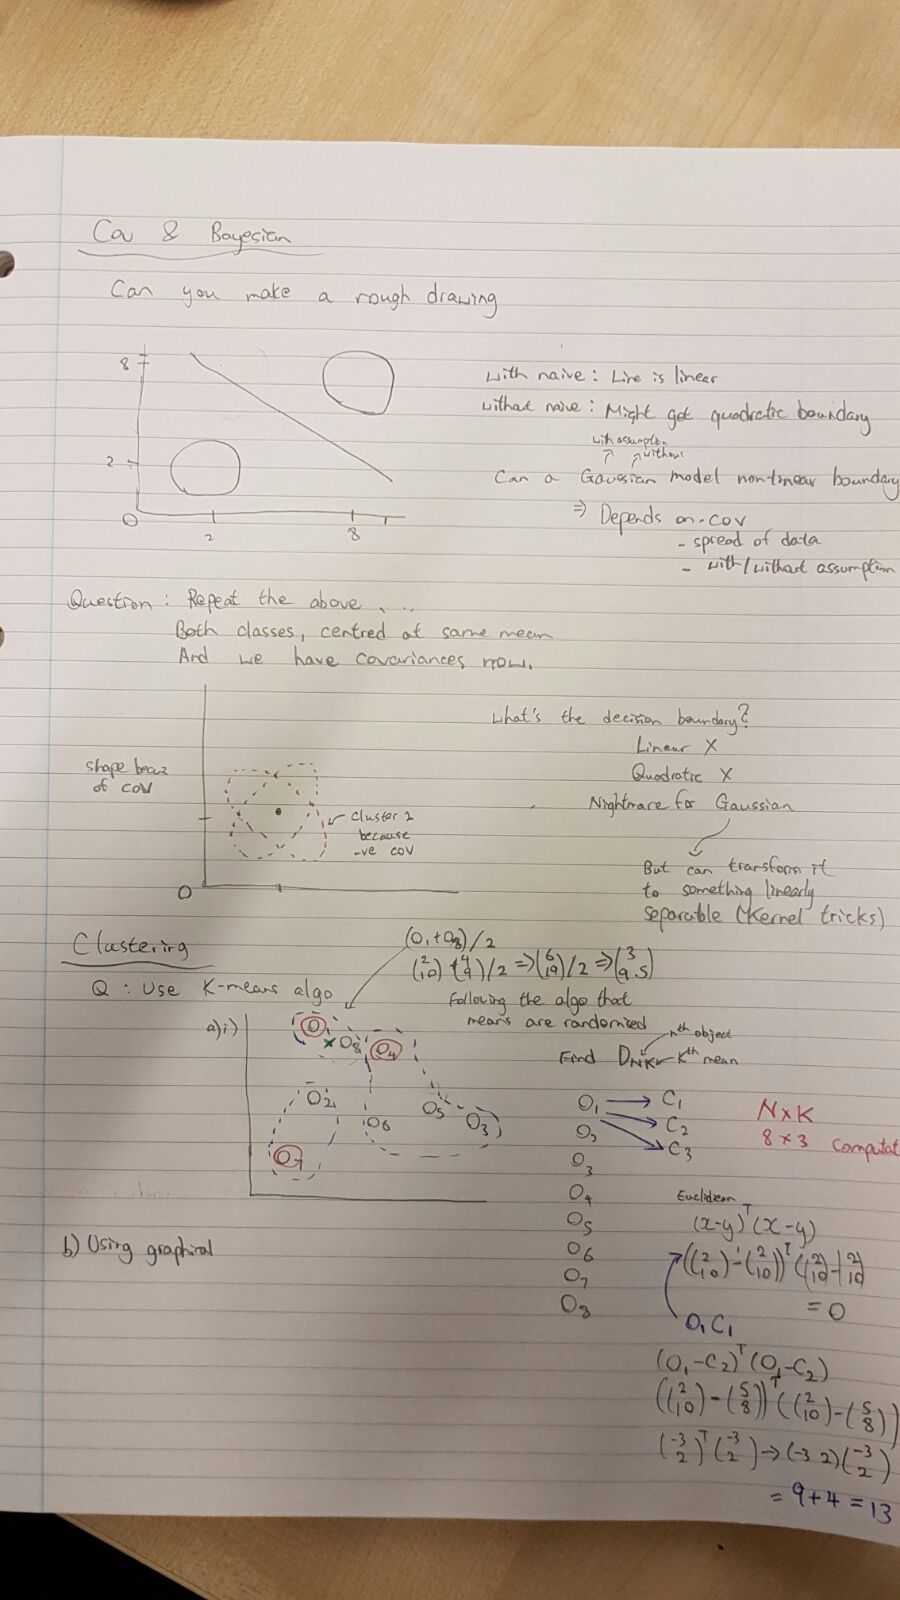 Cov & Bayesian
Can you make a rough drawing
8
2
0
2
8
with naive: Line is linear
without naive: Might get quadratic boundary
with assumption
without
Can a Gaussian model nonlinear boundary
⇒ Depends on cov
- spread of data
- with/without assumption
Question: Repeat the above...
Both classes, centred at same mean
And we have covariances now.
shape
of cov
0
← Cluster 2
because
-ve cov
What's the decision boundary?
Linear X
Quadratic X
Nightmare for Gaussian
But can transform it
to something linearly
separable (Kernel tricks)
Clustering
Q: Use K-means algo
(O1+O8)/2
(2 10)+(4 9)/2 ⇒ (6 19)/2 ⇒ (3 9.5)
following the algo that
means are randomised
nth object
Find DNK Kth mean
a)i)
O1
x O8
O4
O2
O6
O5
O3
O7
b) Using graphical
O1 → C1
O2 C2
C3
O3
O4
O5
O6
O7
O8
NxK
8x3 computat
Euclidean
(x-y)ᵀ(x-y)
((2 10)-(2 10))ᵀ((2 10)-(2 10)
= 0
O1C1
(O1-C2)ᵀ(O1-C2)
((2 10)-(5 8))ᵀ((2 10)-(5 8))
(-3 2)ᵀ(-3 2) → (-3 2)(-3 2)
= 9+4 = 13